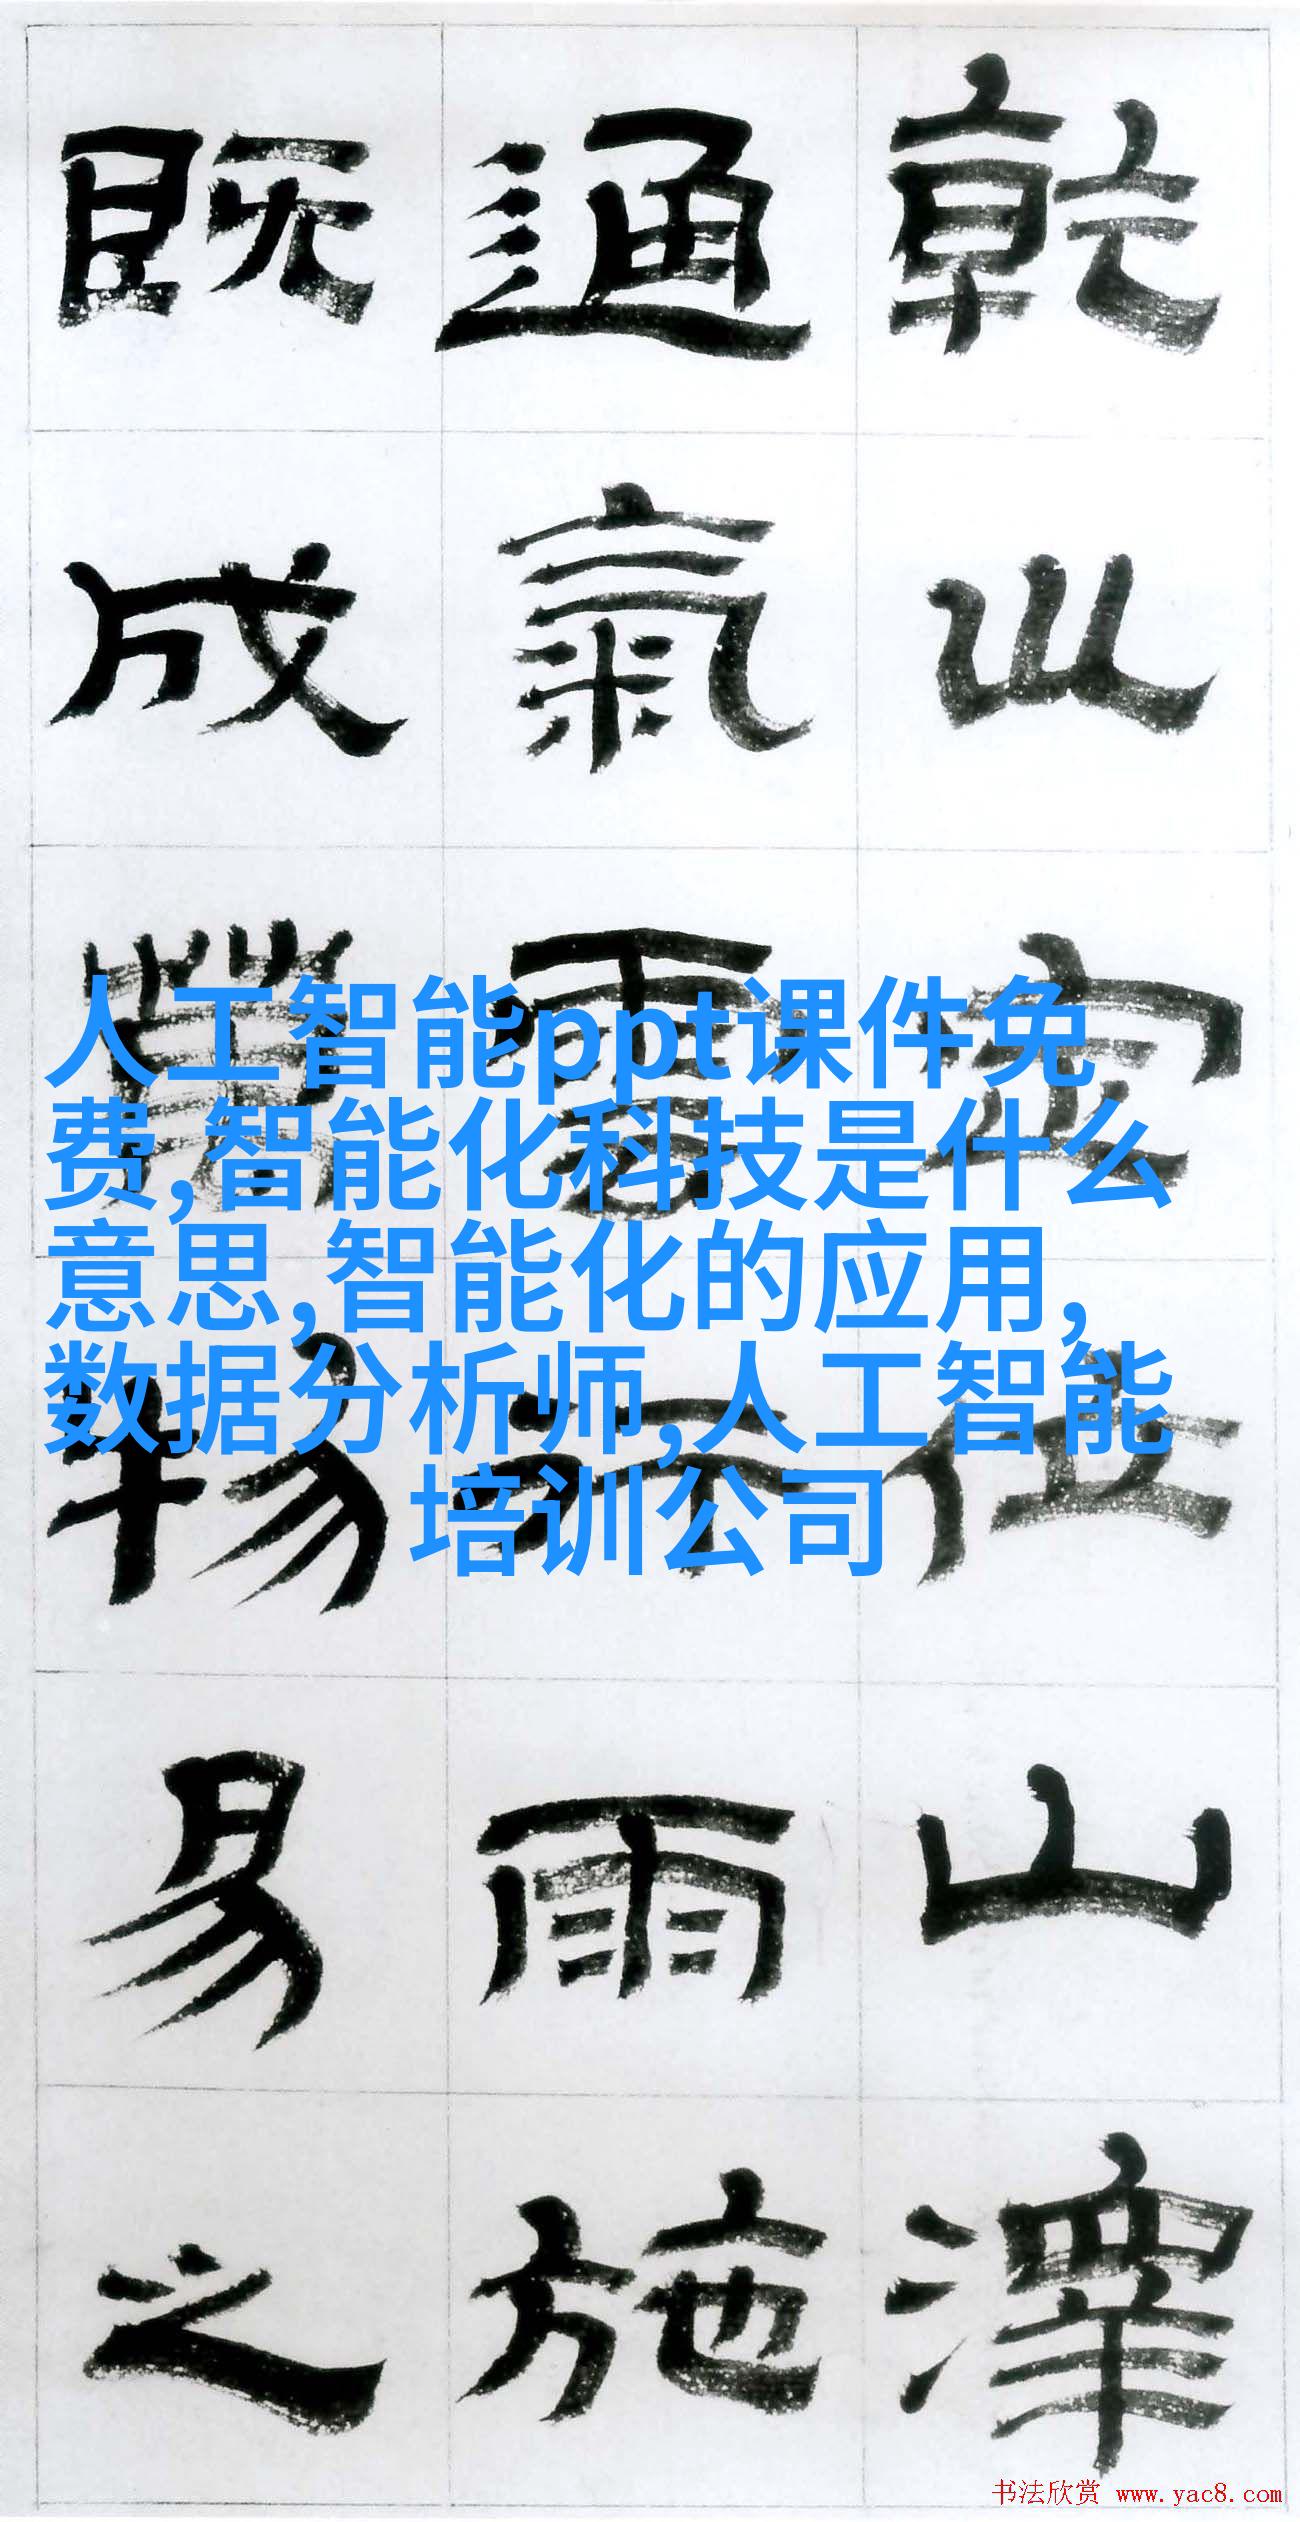 乾巛定位山澤
通氣雷行雨施
既成萬物易之
人工智能ppt课件免
费,智能化科技是什么
意思,智能化的应用,
数据分析师,人工智能
培训公司
书法欣赏 www.yac8.com